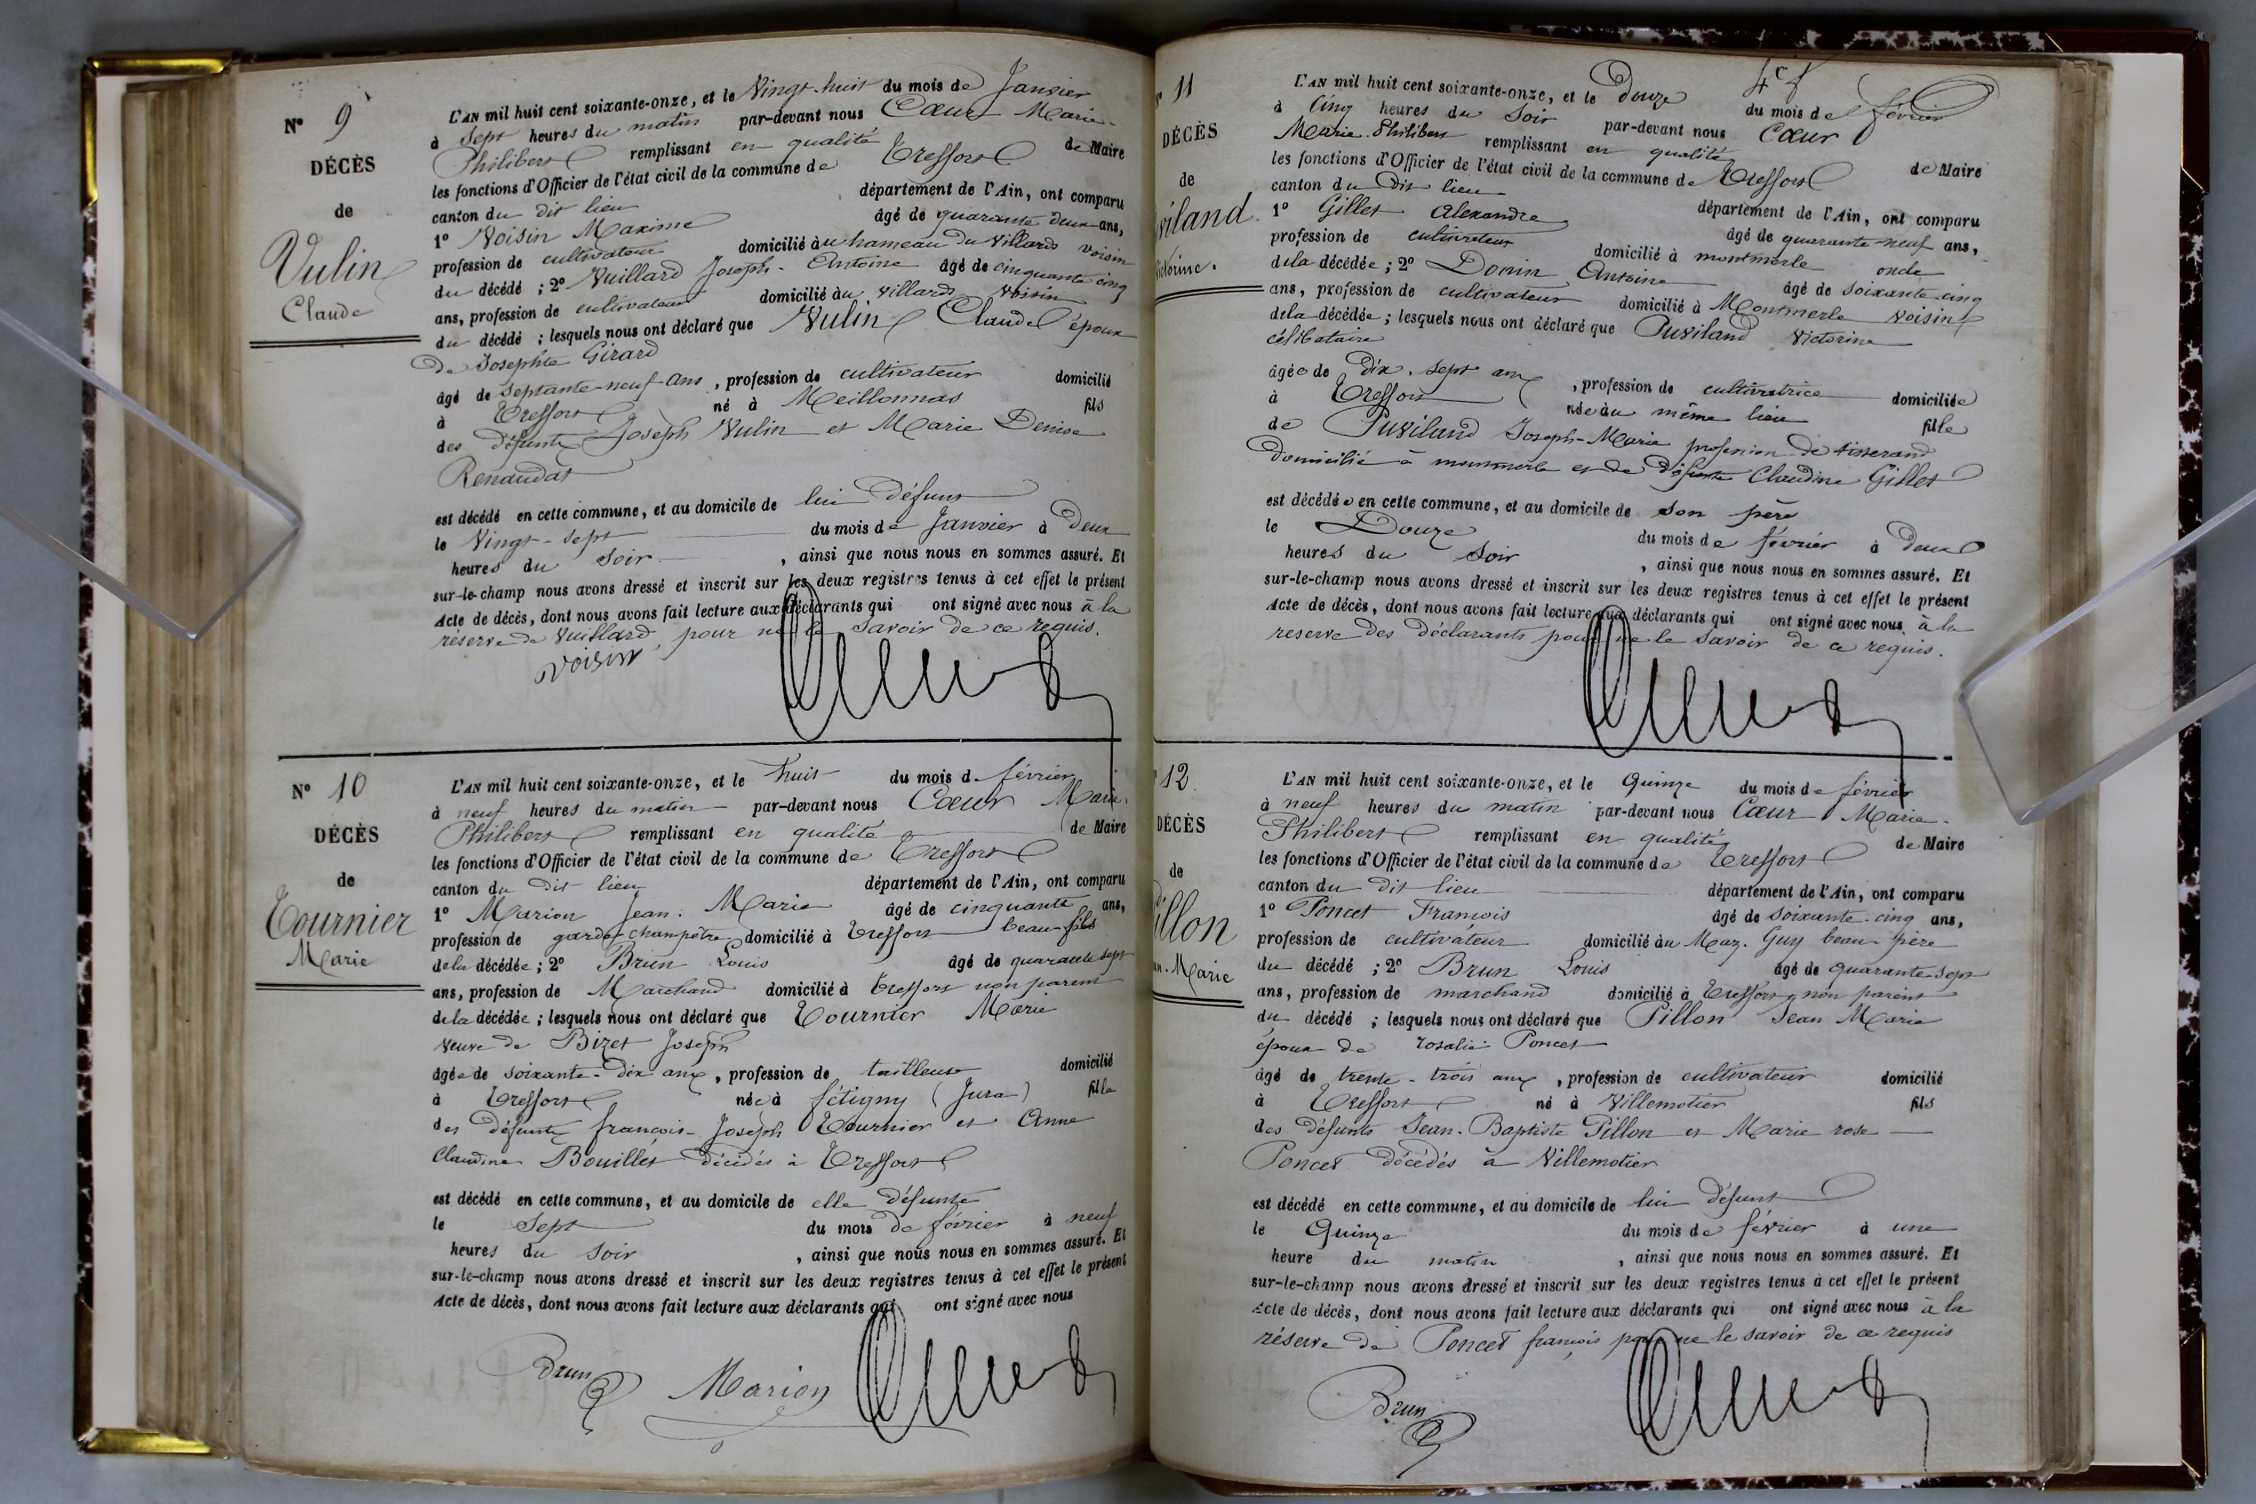 N° 9
DÉCÈS
de
Vulin
Claude
L'AN mil huit cent soixante-onze, et le Vingt-huit du mois de Janvier
à Sept heures du matin par-devant nous Cœur Marie-
Philibert remplissant en qualité de Maire
les fonctions d'Officier de l'état civil de la commune de Treffort
canton du dit lieu département de l'Ain, ont comparu
1° Voisin Maxime âgé de quarante deux ans,
profession de cultivateur domicilié au hameau du Villard voisin
du décédé ; 2° Vuillard Joseph-Antoine âgé de cinquante cinq
ans, profession de cultivateur domicilié au Villard Voisin
du décédé ; lesquels nous ont déclaré que Vulin Claude époux
de Josephte Girard
âgé de septante-neuf ans, profession de cultivateur domicilié
à Treffort né à Meillonnas fils
des défunts Joseph Vulin et Marie Denise
Renaudat
est décédé en cette commune, et au domicile de lui défunt
le Vingt-sept du mois de Janvier à Deux
heures du soir, ainsi que nous nous en sommes assuré. Et
sur-le-champ nous avons dressé et inscrit sur les deux registres tenus à cet effet le présent
Acte de décès, dont nous avons fait lecture aux déclarants qui ont signé avec nous à la
réserve de Vuillard, pour ne le savoir de ce requis.
Voisin
N° 10
DÉCÈS
de
Tournier
Marie
L'AN mil huit cent soixante-onze, et le huit du mois d février
à neuf heures du matin par-devant nous Cœur Marie-
Philibert remplissant en qualité de Maire
les fonctions d'Officier de l'état civil de la commune de Treffort
canton du dit lieu département de l'Ain, ont comparu
1° Marion Jean-Marie âgé de cinquante ans,
profession de garde-champêtre domicilié à Treffort beau-fils
de la décédée ; 2° Brun Louis âgé de quarante sept
ans, profession de Marchand domicilié à Treffort non parent
de la décédée ; lesquels nous ont déclaré que Tournier Marie
veuve de Bizet Joseph
âgée de soixante-dix ans, profession de tailleuse domicilié
à Treffort née à fétigny (Jura) fille
des défunts françois-Joseph Tournier et Anne
Claudine Bouillet décédés à Treffort
est décédé en cette commune, et au domicile de elle défunte
le sept du mois de février à neuf
heures du soir, ainsi que nous nous en sommes assuré. Et
sur-le-champ nous avons dressé et inscrit sur les deux registres tenus à cet effet le présent
Acte de décès, dont nous avons fait lecture aux déclarants qui ont signé avec nous
Brun Marion
11
DÉCÈS
de
viland
ictorine.
L'AN mil huit cent soixante-onze, et le Douze du mois de février
à Cinq heures du Soir par-devant nous Cœur
Marie-Philibert remplissant en qualité de Maire
les fonctions d'Officier de l'état civil de la commune de Treffort
canton du Dit lieu département de l'Ain, ont comparu
1° Gillet Alexandre âgé de quarante-neuf ans,
profession de cultivateur domicilié à montmerle oncle
de la décédée ; 2° Donin Antoine âgé de soixante-cinq
ans, profession de cultivateur domicilié à Montmerle voisin
de la décédée ; lesquels nous ont déclaré que Puviland Victorine
célibataire
âgée de Dix-sept ans, profession de cultivatrice domiciliée
à Treffort née au même lieu fille
de Puviland Joseph-Marie profession de tisserand
domicilié à montmerle et de Défunte Claudine Gillet
est décédée en cette commune, et au domicile de son père
le Douze du mois de février à Deux
heures du Soir, ainsi que nous nous en sommes assuré. Et
sur-le-champ nous avons dressé et inscrit sur les deux registres tenus à cet effet le présent
Acte de décès, dont nous avons fait lecture aux déclarants qui ont signé avec nous à la
reserve des déclarants pour ne le savoir de ce requis.
12
DÉCÈS
de
illon
n-Marie
L'AN mil huit cent soixante-onze, et le Quinze du mois de février
à neuf heures du matin par-devant nous Cœur Marie-
Philibert remplissant en qualité de Maire
les fonctions d'Officier de l'état civil de la commune de Treffort
canton du dit lieu département de l'Ain, ont comparu
1° Poncet François âgé de soixante-cinq ans,
profession de cultivateur domicilié au Maz-Guy beau-père
du décédé ; 2° Brun Louis âgé de quarante-sept
ans, profession de marchand domicilié à Treffort non parent
du décédé ; lesquels nous ont déclaré que Pillon Jean Marie
époux de rosalie Poncet
âgé de trente-trois ans, profession de cultivateur domicilié
à Treffort né à Villemotier fils
des défunts Jean-Baptiste Pillon et Marie rose
Poncet décédés à Villemotier
est décédé en cette commune, et au domicile de lui défunt
le Quinze du mois de février à une
heure du matin, ainsi que nous nous en sommes assuré. Et
sur-le-champ nous avons dressé et inscrit sur les deux registres tenus à cet effet le présent
Acte de décès, dont nous avons fait lecture aux déclarants qui ont signé avec nous à la
réserve de Poncet françois pour ne le savoir de ce requis
Brun